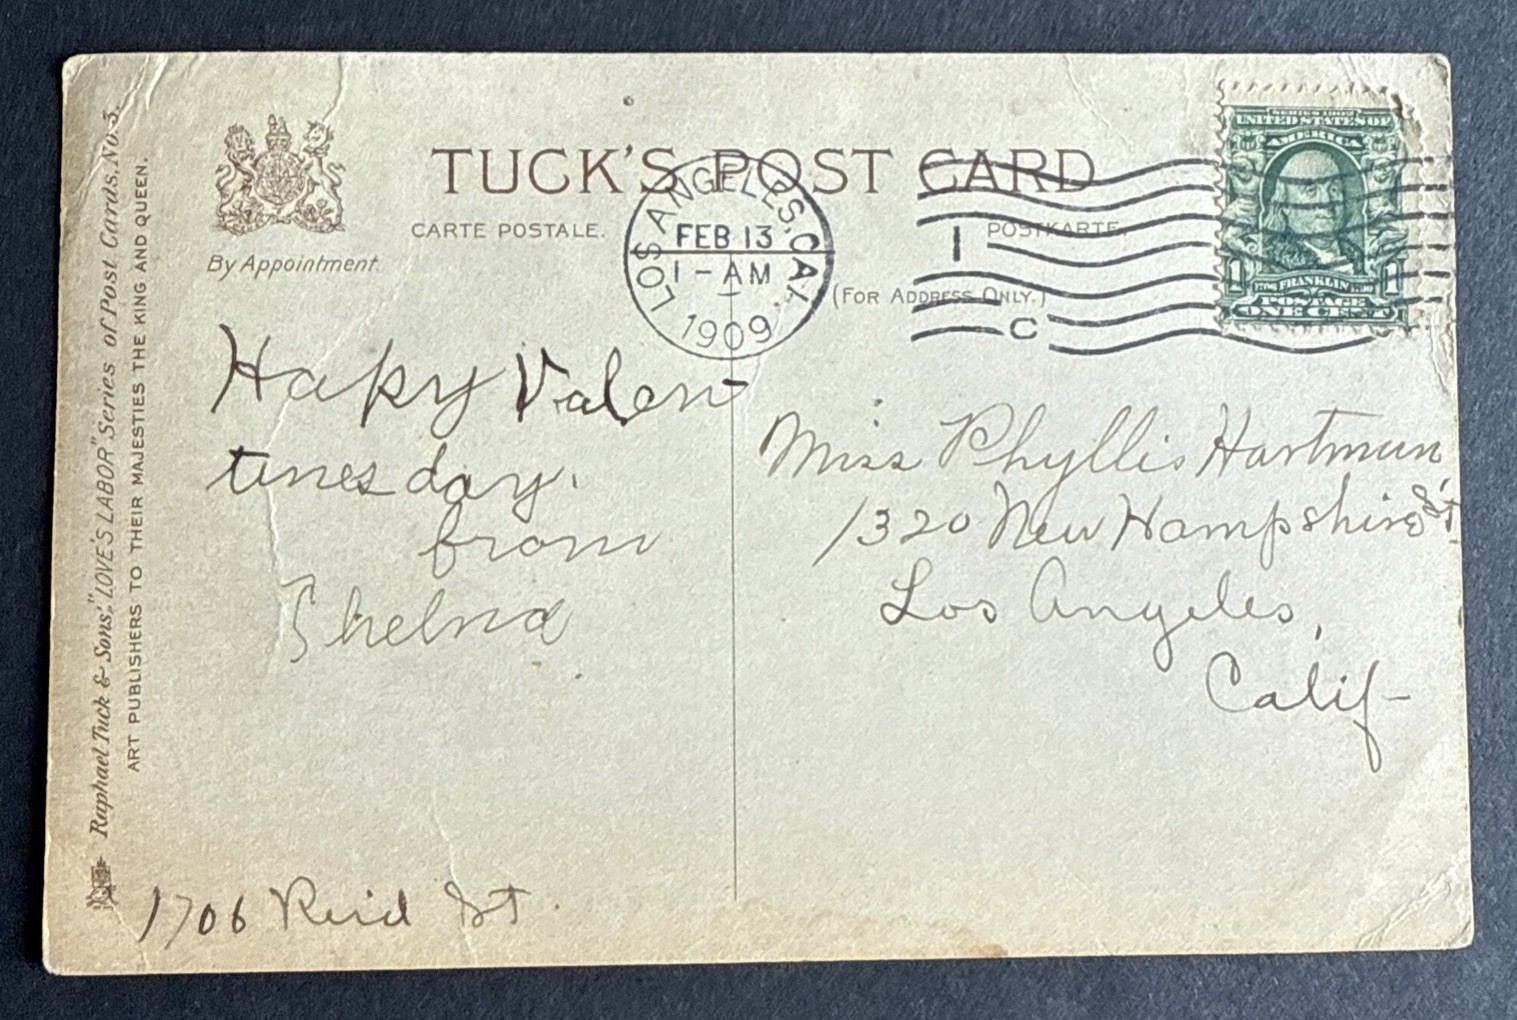 TUCK'S POST CARD
CARTE POSTALE.
POSTKARTE.
By Appointment.
(FOR ADDRESS ONLY.)
LOS ANGELES, CAL.
FEB 13
1 - AM
1909
1
C
SERIES 1902
UNITED STATES OF
AMERICA
1 FRANKLIN 1
POSTAGE
ONE CENT
Raphael Tuck & Sons', "LOVE'S LABOR" Series of Post Cards, No. 3.
ART PUBLISHERS TO THEIR MAJESTIES THE KING AND QUEEN.
Hapy Valen-
tines day.
from
Thelma
1706 Reid St.
Miss Phyllis Hartman,
1320 New Hampshire St.
Los Angeles,
Calif-